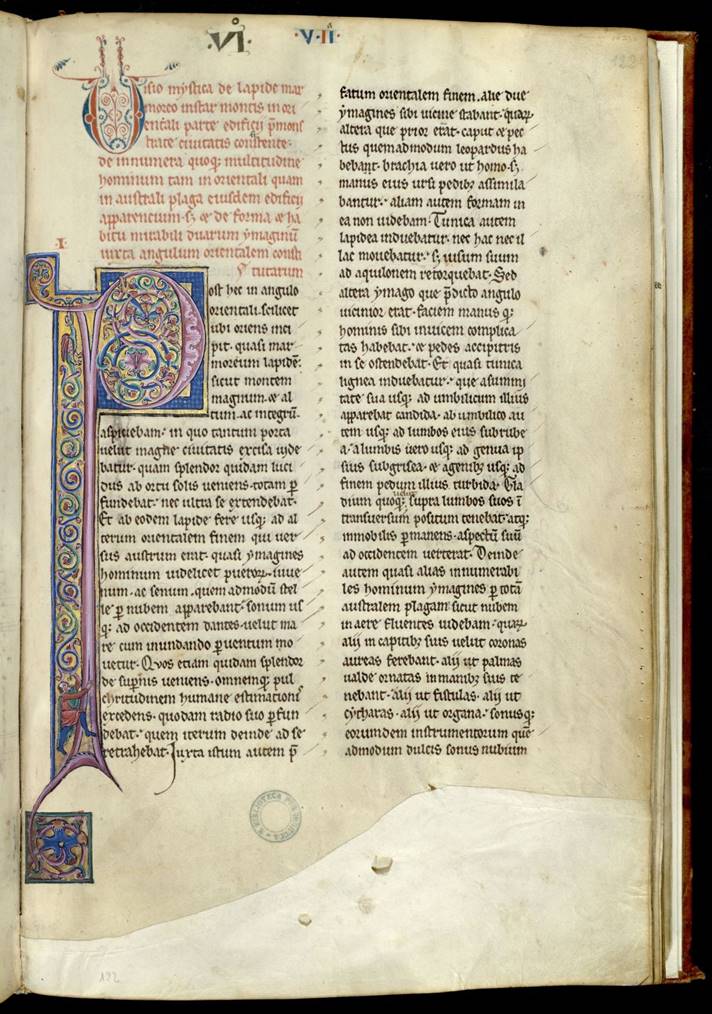 .VI.
.VII.
122
Visio mystica de lapide mar
moreo instar montis in ori
entali parte edificij pmons
trate ciuitatis consistente.
de innumera quoq; multitudine
hominum tam in orientali quam
in australi plaga eiusdem edificij
apparencium. s; & de forma & ha
bitu mirabili duarum ymaginũ
iuxta angulum orientalem consis
.I.
tutarum
Post hec in angulo
orientali. scilicet
ubi oriens inci
pit. quasi mar
moreum lapidẽ.
sicut montem
magnum & al
tum ac integrũ.
aspiciebam. in quo tantum porta
uelut magne ciuitatis excisa uide
batur. quam splendor quidam luci
dus ab ortu solis ueniens. totam p
fundebat. nec ultra se extendebat.
Et ab eodem lapide fere usq; ad al
terum orientalem finem qui uer
sus austrum erat. quasi ymagines
hominum uidelicet puerorꝝ. iuue
num. ac senum. quemadmodũ stel
le p nubem apparebant. sonum us
q; ad occidentem dantes. uelut ma
re cum inundando p uentum mo
uetur. Quos etiam quidam splendor
de supnis ueniens. omnemq; pul
chritudinem humane estimationis
excedens. quodam radio suo pfun
debat. quem iterum deinde ad se
retrahebat. Iuxta istum autem p
fatum orientalem finem. alie due
ymagines sibi uicine stabant. quaꝝ
altera que prior erat. caput & pec
tus quemadmodum leopardus ha
bebant. brachia uero ut homo. s;
manus eius ursi pedibꝫ assimila
bantur. aliam autem formam in
ea non uidebam. Tunica autem
lapidea induebatur. nec hac nec il
lac mouebatur. s; uisum suum
ad aquilonem retorquebat. Sed
altera ymago que pdicto angulo
uicinior erat. faciem manus q;
hominis sibi inuicem complica
tas habebat. & pedes accipitris
in se ostendebat. Et quasi tunica
lignea induebatur. que a summi
tate sua usq; ad umbilicum illius
apparebat candida. ab umbilico au
tem usq; ad lumbos eius subrube
a. a lumbis uero usq; ad genua ip
sius subgrisea. & a genibꝫ usq; ad
finem pedum illius turbida. Gla
dium quoq; uelut supra lumbos suos ĩ
transuersum positum tenebat. atq;
immobilis pmanens. aspectũ suũ
ad occidentem uerterat. Deinde
autem quasi alias innumerabi
les hominum ymagines p totã
australem plagam sicut nubem
in aere fluentes uidebam. quaꝝ
alij in capitibꝫ suis uelut coronas
aureas ferebant. alij ut palmas
ualde ornatas in manibꝫ suis te
nebant. alij ut fistulas. alij ut
cytharas. alij ut organa. sonusq;
eorumdem instrumentorum quẽ
admodum dulcis sonus nubium
122